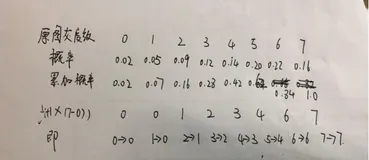 原图灰度级 0 1 2 3 4 5 6 7
概率 0.02 0.05 0.09 0.12 0.14 0.20 0.22 0.16
累加概率 0.02 0.07 0.16 0.28 0.42 0.62 0.84 1.0
×(7-0)) 0 0 1 2 3 4 6 7
即 0→0 1→0 2→1 3→2 4→3 5→4 6→6 7→7